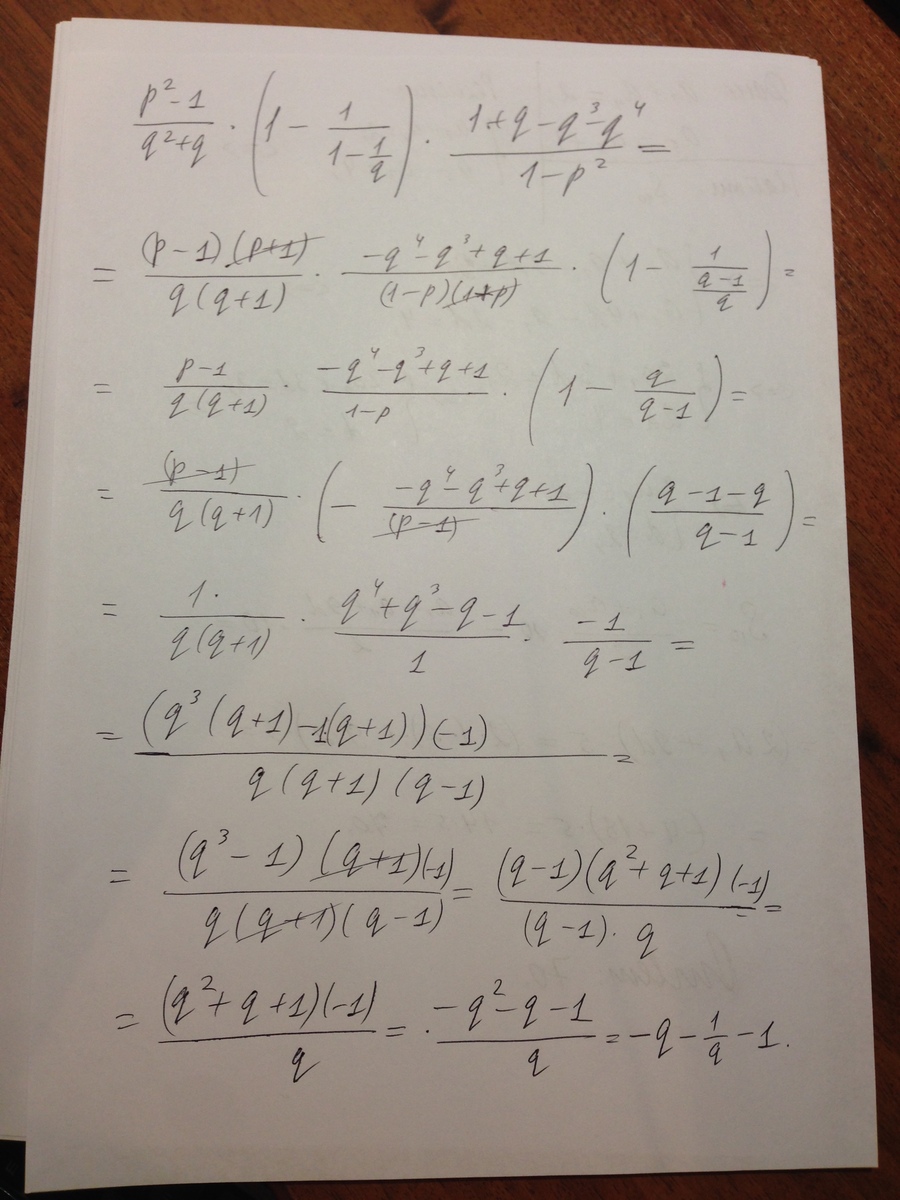 \frac{p^2-1}{q^2+q} \cdot \left(1 - \frac{1}{1-\frac{1}{q}}\right) \cdot \frac{1+q-q^3-q^4}{1-p^2} =
= \frac{(p-1)(p+1)}{q(q+1)} \cdot \frac{-q^4-q^3+q+1}{(1-p)(1+p)} \cdot \left(1 - \frac{1}{\frac{q-1}{q}}\right) =
= \frac{p-1}{q(q+1)} \cdot \frac{-q^4-q^3+q+1}{1-p} \cdot \left(1 - \frac{q}{q-1}\right) =
= \frac{(p-1)}{q(q+1)} \cdot \left(- \frac{-q^4-q^3+q+1}{(p-1)}\right) \cdot \left(\frac{q-1-q}{q-1}\right) =
= \frac{1 \cdot}{q(q+1)} \cdot \frac{q^4+q^3-q-1}{1} \cdot \frac{-1}{q-1} =
= \frac{(q^3(q+1)-1(q+1))(-1)}{q(q+1)(q-1)} =
= \frac{(q^3-1)(q+1)(-1)}{q(q+1)(q-1)} = \frac{(q-1)(q^2+q+1)(-1)}{(q-1) \cdot q} =
= \frac{(q^2+q+1)(-1)}{q} = \frac{-q^2-q-1}{q} = -q-\frac{1}{q}-1.